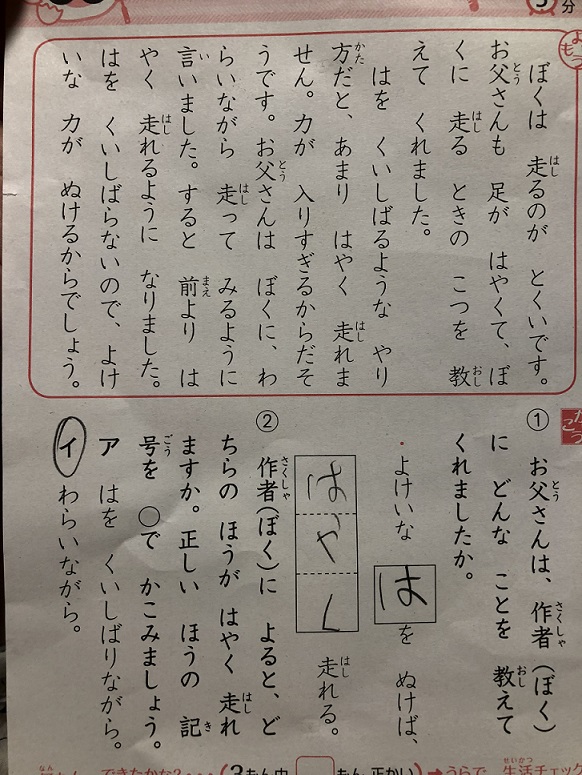 ぼくは 走るのが とくいです。
お父さんも 足が はやくて、ぼ
くに 走る ときの こつを 教
えて くれました。
はを くいしばるような やり
方だと、あまり はやく 走れま
せん。力が 入りすぎるからだそ
うです。お父さんは ぼくに、わ
らいながら 走って みるように
言いました。すると 前より は
やく 走れるように なりました。
はを くいしばらないので、よけ
いな 力が ぬけるからでしょう。
① お父さんは、作者(ぼく)
に どんな ことを 教えて
くれましたか。
・よけいな はを ぬけば、
はやく 走れる。
② 作者(ぼく)に よると、ど
ちらの ほうが はやく 走れ
ますか。正しい ほうの 記
号を ○で かこみましょう。
ア はを くいしばりながら。
イ わらいながら。